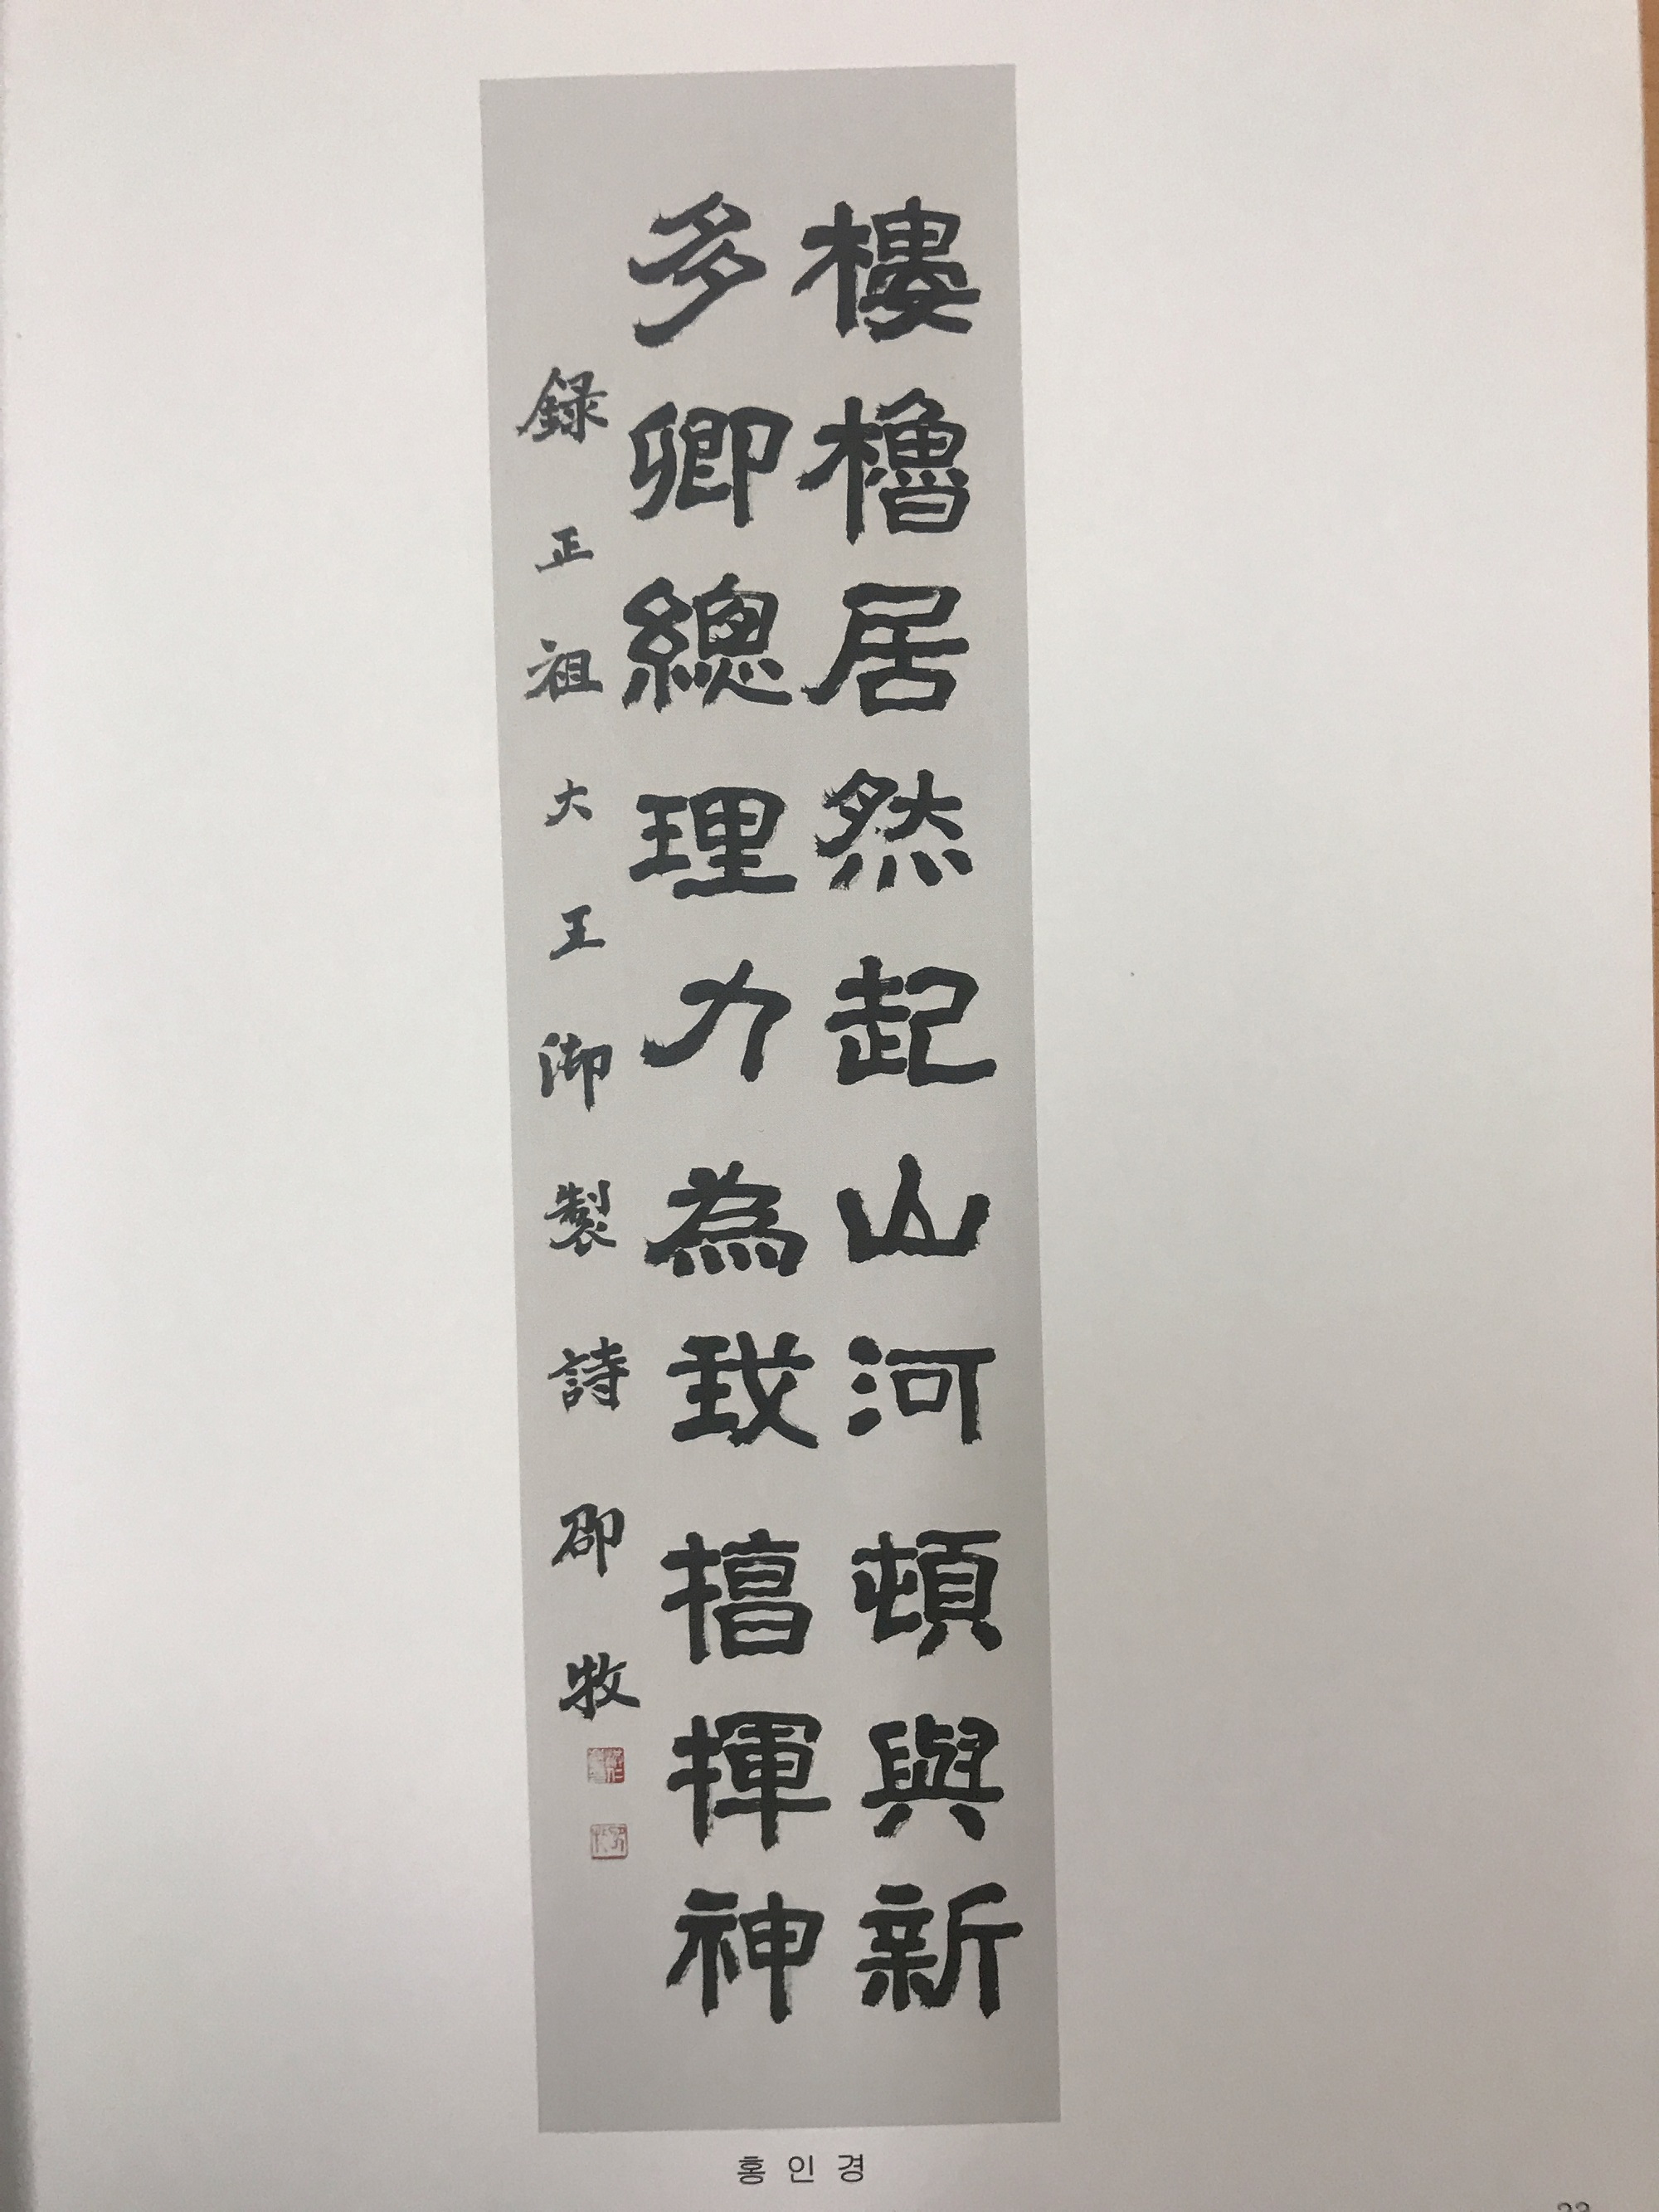 樓櫓居然起山河頓與新
多卿總理力為我揮神
録正祖大王御製詩邵牧
홍인경